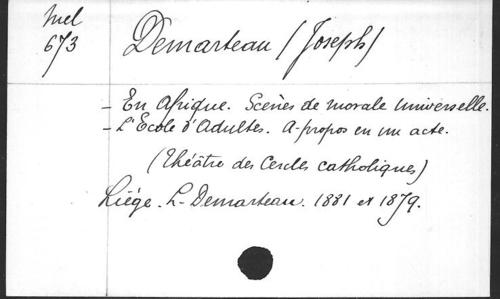 Mel
673
Demarteau (Joseph)
- En Afrique. Scènes de morale universelle.
- L'Ecole d'Adultes. A-propos en un acte.
(Théâtre des Cercles catholiques)
Liége. L. Demarteau. 1881 et 1879.